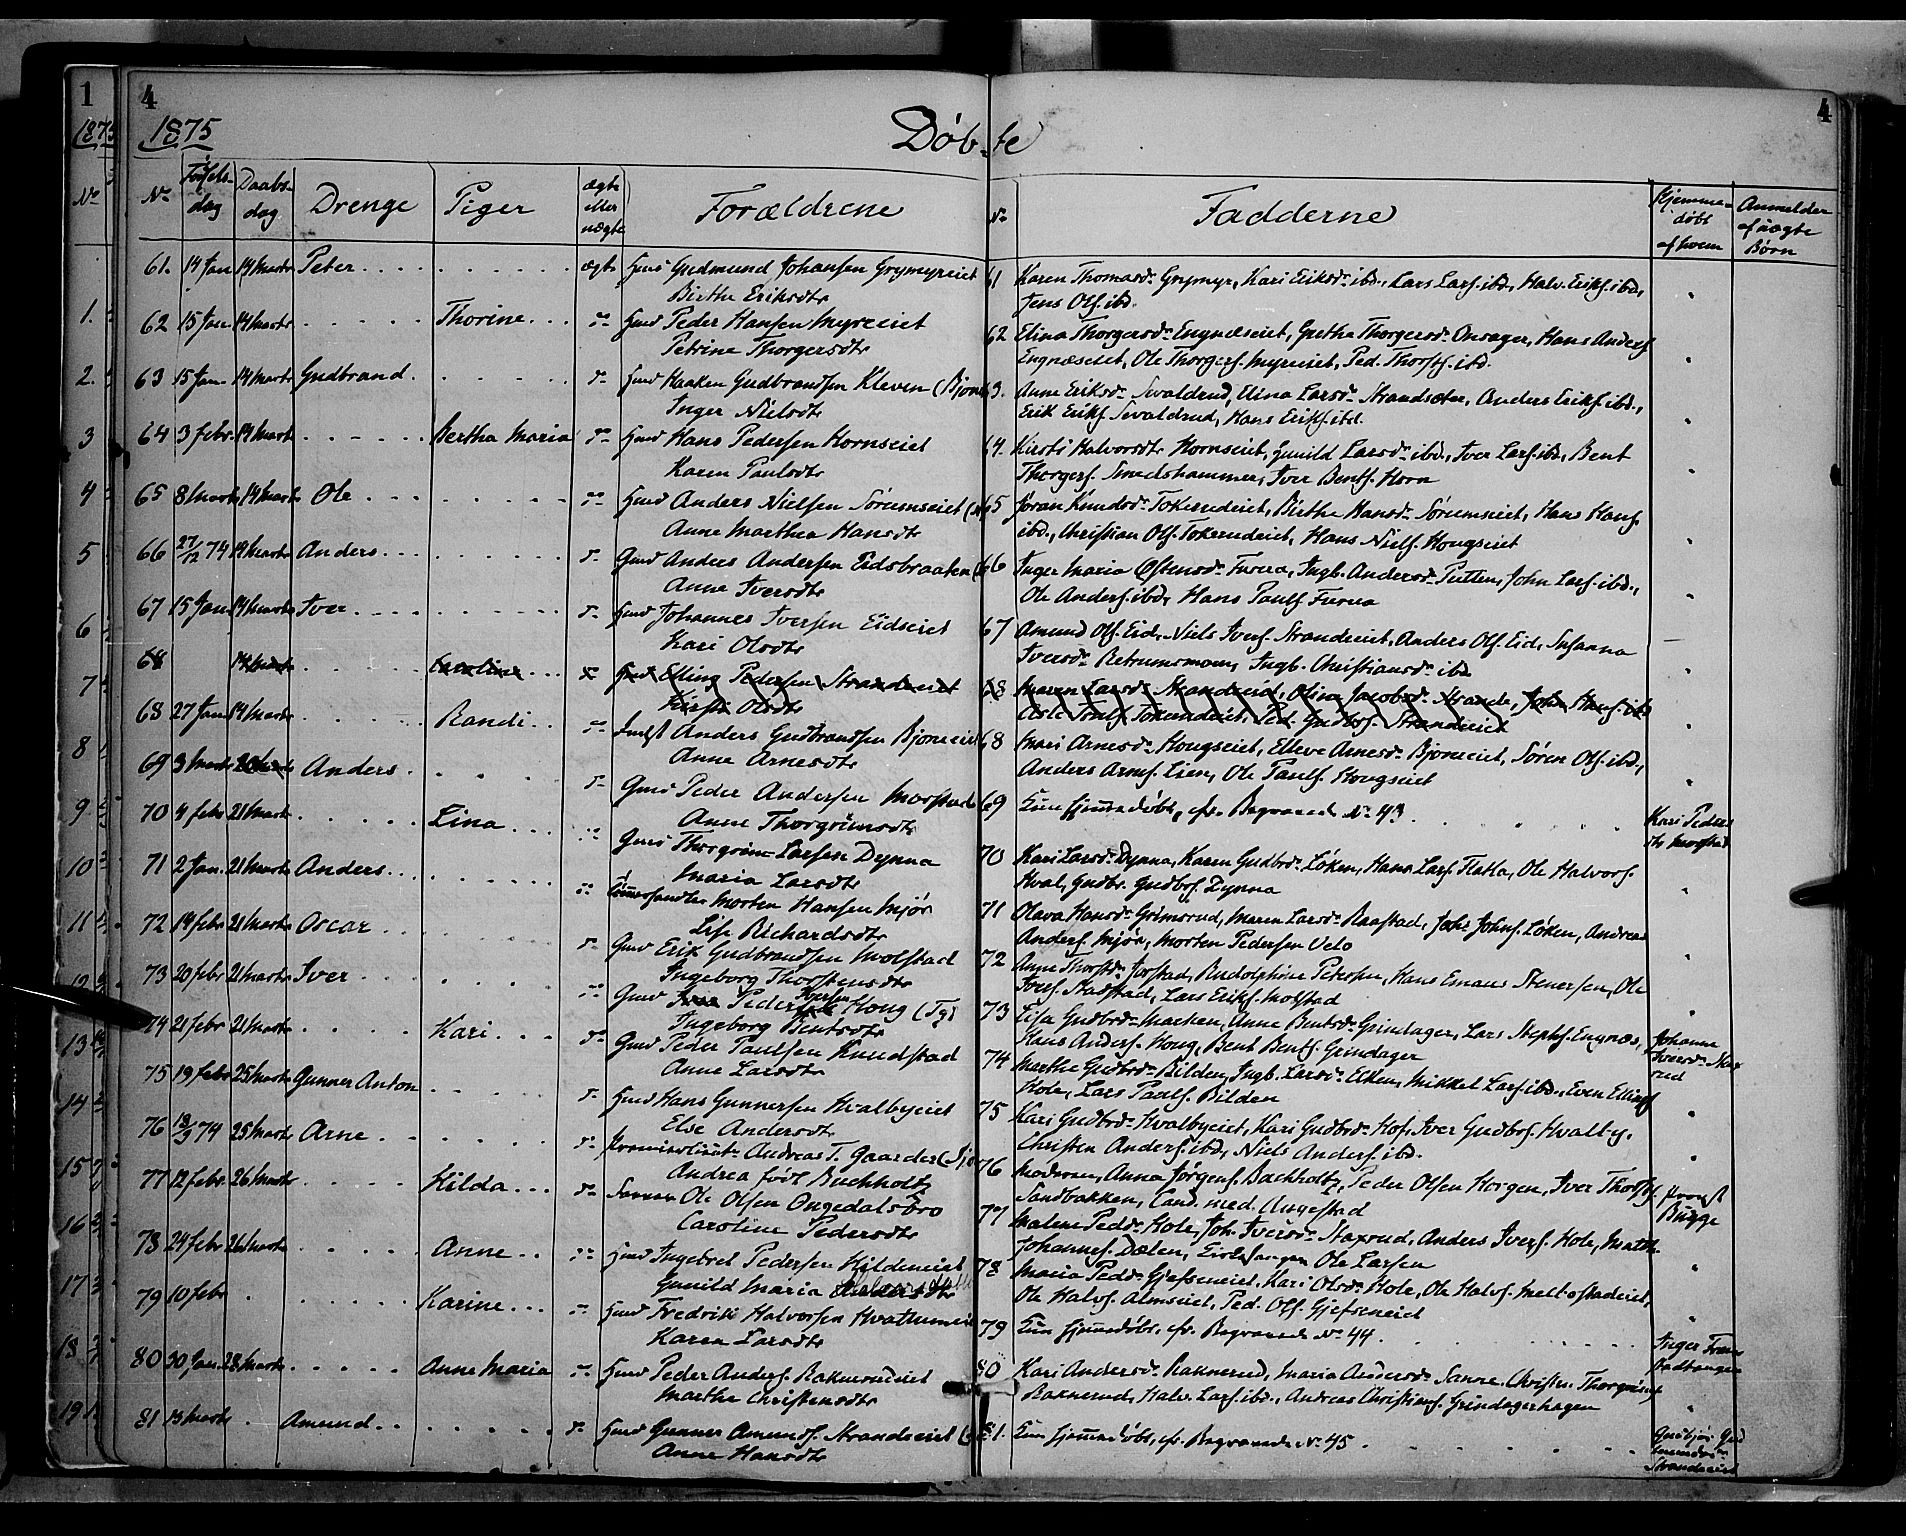 1 4 4
1875 1875 Døb-te
No No Fødsels-dag Daabs-dag Drenge Piger ægte eller uægte Forældrene No Fadderne Hjemme-døbt af hvem Anmelder af uægte Børn
61. 14 Jan 14 Marts Peter ægte Huus Gudmund Johansen Grymyreiet
Birthe Eriksdtr
61 Karen Thomasdr Grymyr, Kari Eriksdr ibd., Lars Lars. ibd., Halv. Eriks. ibd.,
Jens Ols. ibd.
1. 62 15 Jan 14 Marts Thorine do Huus Peder Hansen Myreeiet
Petrine Thorgersdtr
62 Elina Thorgersdr Engnæseiet, Grethe Thorgersdr Onsager, Hans Anders.
Engnæseiet, Ole Thorgers. Myreeiet, Ped. Thorsts. ibd.
2. 63 15 Jan 14 Marts Gudbrand do Huus Haaken Gudbrandsen Kleven (Bjone
Inger Nielsdtr
63. Anne Eriksdr Sevaldrud, Elina Larsdr Strandsæter, Anders Eriks. ibd.,
Erik Eriks. Sevaldrud, Hans Eriks. ibd.
3 64 3 febr. 14 Marts Bertha Maria do Huus Hans Pedersen Hornseiet
Karen Paulsdtr
64. Kirsti Halvorsdtr Hornseiet, Gunild Larsdr ibd., Iver Lars. ibd., Bent
Thorgers. Smedshammer, Iver Bents. Horn
4 65 8 Marts 14 Marts Ole do Huus Anders Nielsen Sørumseiet
Anne Marthea Hansdtr
65 Jøran Knudsdr Tokerudeiet, Birthe Hansdr Sørumseiet, Hans Hans.
ibd., Christian Ols. Tokerudeiet, Hans Niels. Hougseiet
5 66 27/12 74 14 Marts Anders do Gmd Anders Andersen Eidsbraaten
Anne Iversdtr
66 Inger Maria Østensdr Furua, Ingb. Andersdr Putten, John Lars. ibd.,
Ole Anders. ibd, Hans Pauls. Furua
6 67 15 Jan 14 Marts Iver do Huus Johannes Iversen Eidseiet
Kari Olsdtr
67 Amund Ols. Eid, Niels Ivers. Strandeiet, Anders Ols. Eid, Susanna
Iversdr Retrumsmoen, Ingb. Christiansdr ibd
7 68 14 Marts Caroline Huus Elling Pedersen Strandeiet
Kirsti Olsdtr
68 Maren Larsdr Strandeiet, Olina Jacobsdr Strande, John Hans. ibd
Asle Pouls. Tokerudeiet, Ped. Gudbrs. Strandeiet
68 27 Jan 14 Marts Randi do Indst Anders Gudbrandsen Bjoneeiet
Anne Arnesdtr
68 Mari Arnesdr Hougseiet, Elleve Arnesdr Bjoneeiet, Søren Ols. ibd.,
Anders Arnes. Lien, Ole Pauls. Hougseiet
8 69 3 Marts Anders do Gmd Peder Andersen Morstad
Anne Thorgrimsdtr
69 Kun hjemmedøbt, cfr. Begravede No 43
Kari Pedersdtr Morstad
9 70 4 febr 21 Marts Lina do Gmd Thorgrim Larsen Dynna
Maria Larsdtr
70 Kari Larsdr Dynna, Karen Gudbrdr Løken, Hans Lars. Flatla, Ole Halvors.
Hval, Gudbr. Gudbrs. Dynna
10 71 2 Jan. 21 Marts Anders do Tømmerhandler Morten Hansen Mjør
Lise Richardsdtr
71 Olava Hansdr Grimsrud, Maren Larsdr Raastad, Joh. Johns. Løken, Andreas
Anders. Mjør, Morten Pedersen Velo
11 72 14 febr 21 Marts Oscar do Gmd Erik Gudbrandsen Molstad
Ingeborg Thorstensdtr
72 Anne Thorstdr Jorstad, Rudolphine Petersen, Hans Enaus Stenersen, Ole
Ivers. Stadstad, Lars Eriks. Molstad
12 73 20 febr 21 Marts Iver do Gmd Iver Peder Iversen Houg
Ingeborg Bentsdtr
73 Lisa Gudbrdr Marken, Anne Bentsdr Grindager, Lars Stephs. Engnæs,
Hans Anders. Houg, Bent Bents. Grindager
13 74 21 febr 21 Marts Kari do Gmd Peder Paulsen Knudstad
Anne Larsdtr
74 Marthe Gudbrdr Bilden, Ingb. Larsdr Elken, Mikkel Lars. ibd., Even Ellings.
Hole, Lars Pauls. Bilden
Johanne Iversdr
14 75 19 febr 25 Marts Gunner Anton do Huus Hans Gunnersen Hvalbyeiet
Else Andersdtr
75 Kari Gudbrdr Hvalbyeiet, Kari Gudbrdr Hof, Iver Gudbrs. Hvalby,
Christen Anders. ibd, Niels Anders. ibd.
76 18/9 74 25 Marts Arne do Premierlieut. Andreas T. Gaarder
Andrea født Buchholtz
76 Moderen, Anna Jørgens. Buchholtz, Peder Olsen Horgen, Iver Thorsts.
Sandbakken, Cand. med. Augestad
Provst Bugge
15 77 12 febr. 26 Marts Hilda do Ole Olsen Ongedalsbro
Caroline Pedersdtr
77 Malene Peddr Hole, Joh. Iversdr Staxrud, Anders Ivers. Hole, Math.
Johannes. Dælen, Kirkesanger Ole Larsen
16 78 24 febr 26 Marts Anne do Huus Ingebret Pedersen Hildeneiet
Gunild Maria
78 Maria Peddr Gjefseneiet, Kari Olsdr Hole, Ole Halvs. Mellostadeiet,
Ole Halvs. Almseiet, Ped. Ols. Gjefseneiet
17 79 10 febr Karine do Huus Fredrik Halvorsen Hvattumeiet
Karen Larsdtr
79 Kun hjemmedøbt, cfr. Begravede No 44.
Inger
18 80 30 Jan. 28 Marts Anne Maria do Huus Peder Anders. Raknerudeiet
Marthe Christensdtr
80 Kari Andersdr Raknerud, Maria Andersdr Sanne, Christen Thorgrims.
Raknerud, Halv. Lars. ibd., Andreas Christians. Grindagerhagen
19 81 13 Marts Amund do Huus Gunner Amunds. Strandeeiet
Anne Hansdtr
81. Kun hjemmedøbt, cfr. Begravede No 45
Gudbjør Gudmundsdr Strandeeiet